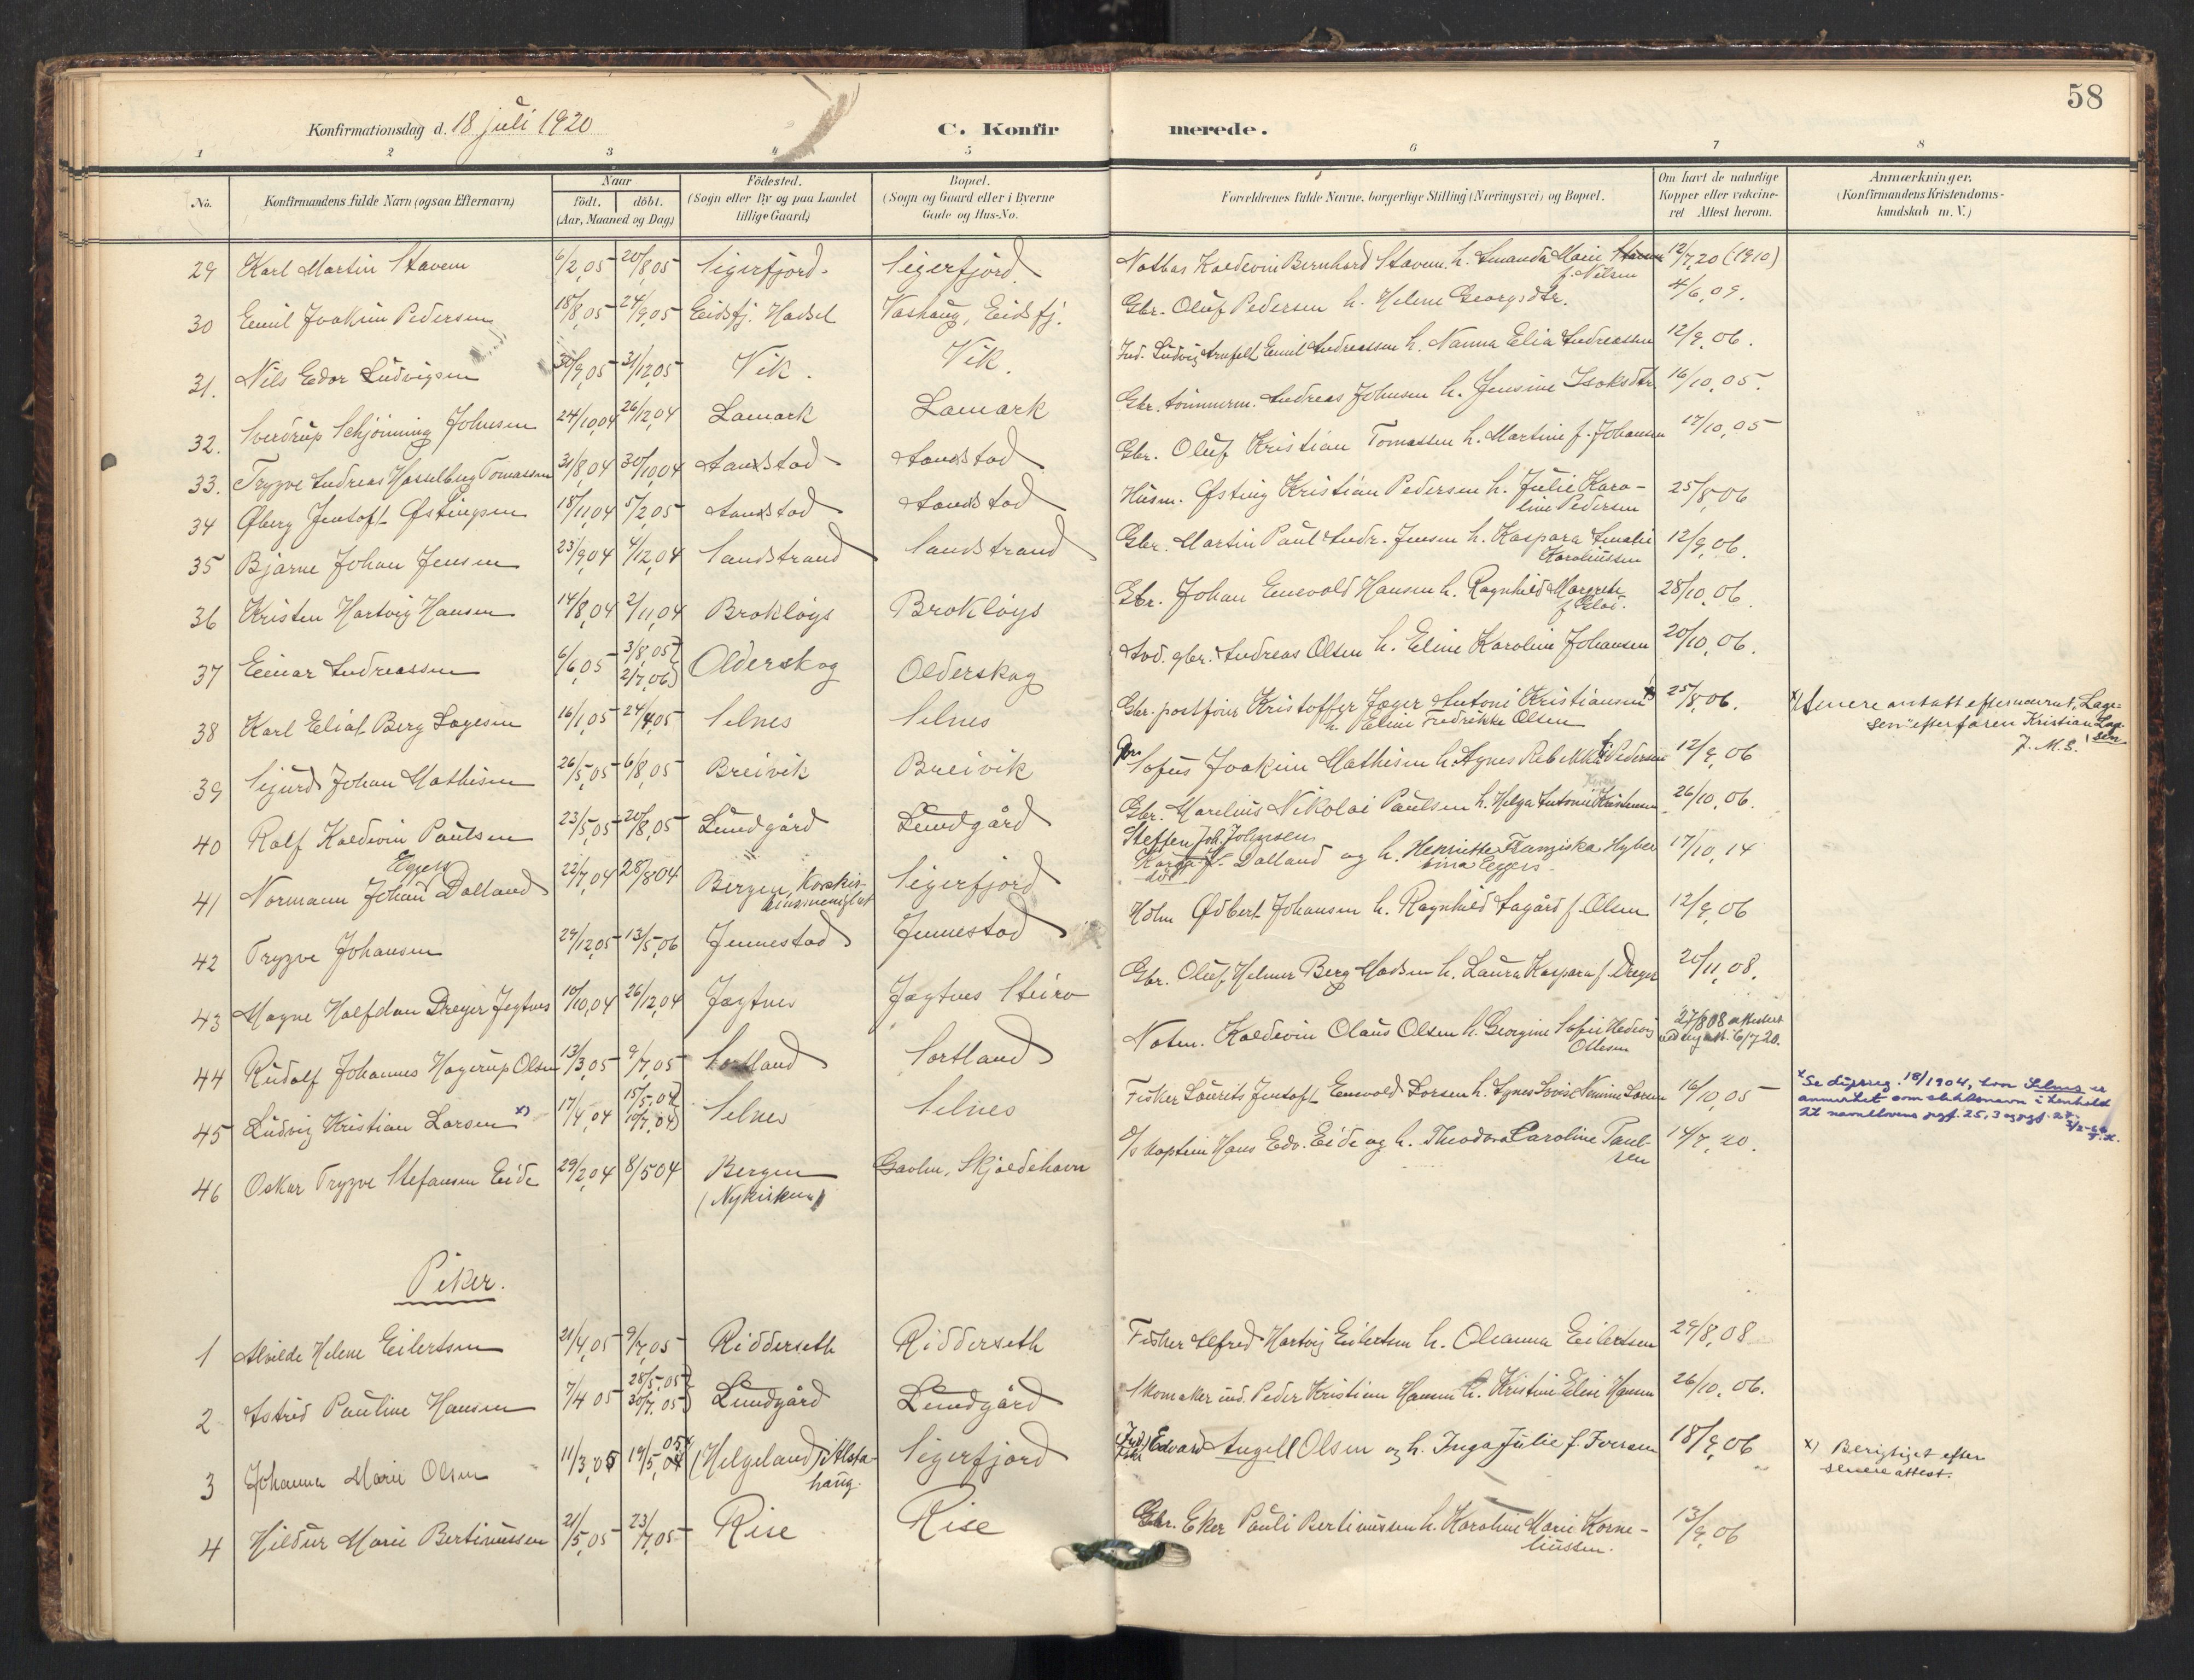 58
Konfirmationsdag d. 18 juli 1920
C. Konfirmerede.
1 2 3 4 5 6 7 8
No.
Konfirmandens fulde Navn (ogsaa Efternavn)
Naar
födt. döbt.
(Aar, Maaned og Dag)
Födested.
(Sogn eller By og paa Landet tillige Gaard)
Bopæl.
(Sogn og Gaard eller i Byerne Gade og Hus-No.
Forældrenes fulde Navne, borgerlige Stilling (Næringsvei) og Bopæl.
Om havt de naturlige Kopper eller vakcineret Attest herom.
Anmærkninger.
(Konfirmandens Kristendomskundskab m. V.)
29 Karl Martin Stavem 6/2,05 20/8,05 Sigerfjord Sigerfjord Kaldevin Bernhard Stavem h. Amanda Marie f. Nilsen 12/7,20 (1910)
30 Emil Joakim Pedersen 18/8,05 24/9,05 Eidsfj. Hadsel Vashaug, Eidsfj. Gbr. Oluf Pedersen h. Helene Georgsdtr. 4/6,09.
31. Nils Edor Ludvigsen 30/9,05 31/12,05 Vik. Vik. Ind. Ludvig Arnfelt Emil Andreassen h. Nanna Elia Andreassen 12/9,06.
32. Sverdrup Schjönning Johnsen 24/10,04 26/12,04 Lamark Lamark Gbr. tömmerm. Andreas Johnsen h. Jensine Isaksdtr. 16/10,05.
33. Trygve Andreas Hasselberg Tomassen 31/8,04 30/10,04 Aandstad Aandstad Gbr. Oluf Kristian Tomassen h. Martine f. Johansen 17/10,05
34 Øberg Jentoft Østingsen 18/11,04 5/2,05 Aandstad Aandstad Husm. Østing Kristian Pedersen h. Julie Karoline Pedersen 25/8,06
35 Bjarne Johan Jensen 23/9,04 4/12,04 Sandstrand Sandstrand Gbr. Martin Paul Andr. Jensen h. Kaspara Amalie Karoliussen 12/9,06.
36 Kristen Hartvig Hansen 14/8,04 2/11,04 Brokløys Brokløys Gbr. Johan Enevold Hansen h. Ragnhild Margrete 28/10,06.
37 Einar Andreassen 6/6,05 3/8,05) 2/7,06) Olderskog Olderskog gbr. Andreas Olsen h. Eline Karoline Johansen 20/10,06.
38 Karl Eliot Berg Lagesen 16/1,05 24/4,05 Selnes Selnes Gbr. postfører Kristoffer Jæger Antoni Kristiansen x) h. Eline Fredrikke Olsen 25/8,06. x) Senere antatt efternavnet "Lagesen" efter faren Kristian Lagesen J. M. S.
39 Sigurd Johan Mathisen 26/5,05 6/8,05 Breivik Breivik Gbr. Sofus Joakim Mathisen h. Agnes Rebekka f. Pedersen 12/9,06
40 Ralf Kaldevin Paulsen 23/5,05 20/8,05 Lundgård Lundgård Gbr. Marelius Nikolai Paulsen h. Helga Antonie Kristensen 26/10,06.
41 Normann Johan Eggers Dalland 22/7,04 28/8 04 Bergen, Korskirkens menighet Sigerfjord Steffen Joh. Johnsen Dalland og h. Henriette Franziska Hyber sina Eggers 17/10,14
42 Trygve Johansen 29/12,05 13/5,06 Jennestad Jennestad Holm Ødbert Johansen h. Ragnhild Aagård f. Olsen 12/9,06
43 Magne Halfdan Dreyer Jegtnes 10/10,04 26/12,04 Jagtnes Jagtnes Steiro Gbr. Oluf Helmer Berg Madsen h. Laura Kaspara f. Dreyer 20/11,08.
44 Rudolf Johannes Hagerup Olsen 13/3,05 9/7,05 Sortland Sortland Notm. Kaldevin Olaus Olsen h. Georgine Sofie Hedvig Ottesen 27/8 08 attestert 6/7 20.
45 Ludvig Kristian Larsen x) 17/4,04 15/5,04) 10/7,04) Selnes Selnes Fisker Laurits Jentoft Enevold Larsen h. Agnes Lovise Larsen 16/10,05 x Se dåpsreg. 18/1904, hvor Selnes er anmerket som slektsnavn i henhold til navnelovens prgf. 25,3
46 Oskar Trygve Stefansen Eide 29/2,04 8/5 04 Bergen (Nykirken) Gavlen, Skjoldehavn D/s kaptein Hans Edv. Eide og h. Theodora Caroline Paulsen 14/7,20.
Piker.
1 Alvilde Helene Eilertsen 21/4,05 9/7,05 Ridderseth Ridderseth Fisker Alfred Hartvig Eilertsen h. Oleanna Eilertsen 29/8,08
2 Astrid Pauline Hansen 7/4 05 28/5,05) 30/7,05) Lundgård Lundgård Skomaker ind. Peder Kristian Hansen h. Kristine Elise Hansen 26/10,06.
3 Johanna Marie Olsen 11/3,05 14/5,05x (Helgeland) i Alstahaug. Sigerfjord Edvard Angell Olsen og h. Inga Julie f. Iversen 18/9,06 x) Berigtiget efter senere attest.
4 Hildur Marie Bertinussen 21/5,05 23/7,05 Rise Rise Gbr. Eker Pauli Bertinussen h. Karoline Marie Korneliussen. 13/9,06